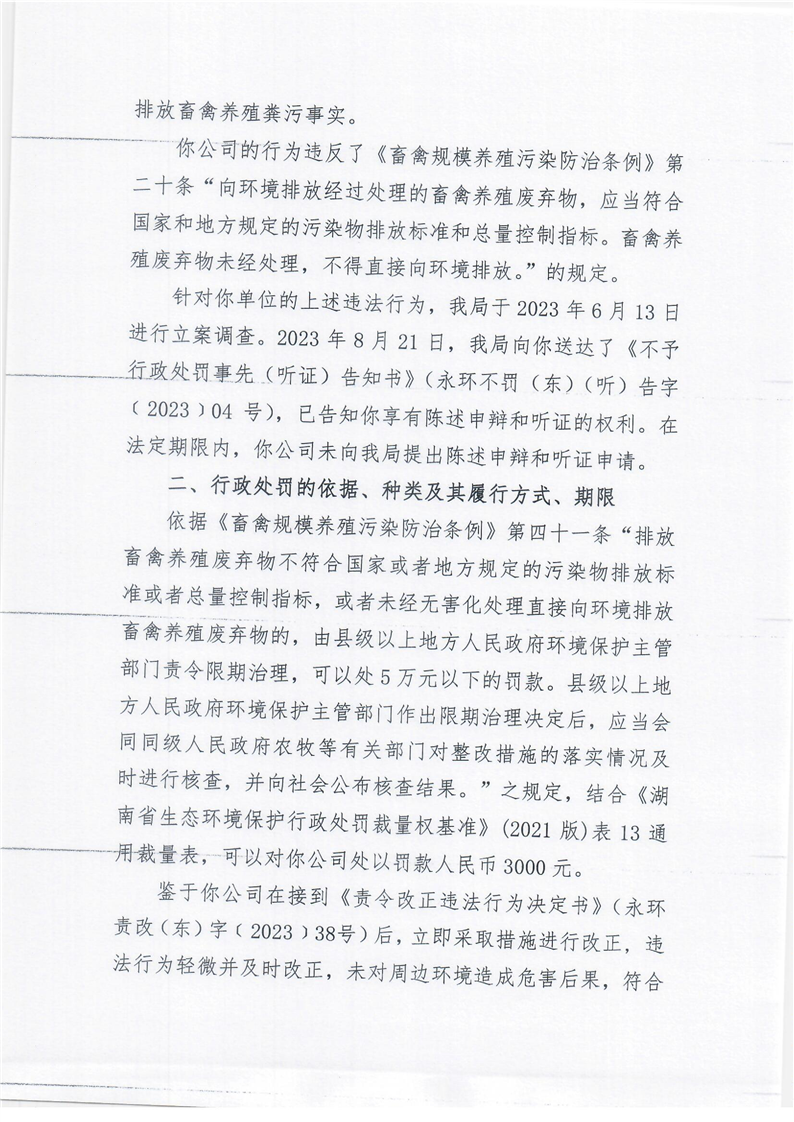 排放畜禽养殖粪污事实。
你公司的行为违反了《畜禽规模养殖污染防治条例》第
二十条“向环境排放经过处理的畜禽养殖废弃物，应当符合
国家和地方规定的污染物排放标准和总量控制指标。畜禽养
殖废弃物未经处理，不得直接向环境排放。”的规定。
针对你单位的上述违法行为，我局于 2023 年 6 月 13 日
进行立案调查。2023 年 8 月 21 日，我局向你送达了《不予
行政处罚事先（听证）告知书》（永环不罚（东）（听）告字
﹝2023﹞04 号），已告知你享有陈述申辩和听证的权利。在
法定期限内，你公司未向我局提出陈述申辩和听证申请。
二、行政处罚的依据、种类及其履行方式、期限
依据《畜禽规模养殖污染防治条例》第四十一条“排放
畜禽养殖废弃物不符合国家或者地方规定的污染物排放标
准或者总量控制指标，或者未经无害化处理直接向环境排放
畜禽养殖废弃物的，由县级以上地方人民政府环境保护主管
部门责令限期治理，可以处 5 万元以下的罚款。县级以上地
方人民政府环境保护主管部门作出限期治理决定后，应当会
同同级人民政府农牧等有关部门对整改措施的落实情况及
时进行核查，并向社会公布核查结果。”之规定，结合《湖
南省生态环境保护行政处罚裁量权基准》(2021 版)表 13 通
用裁量表，可以对你公司处以罚款人民币 3000 元。
鉴于你公司在接到《责令改正违法行为决定书》（永环
责改（东）字﹝2023﹞38号）后，立即采取措施进行改正，违
法行为轻微并及时改正，未对周边环境造成危害后果，符合